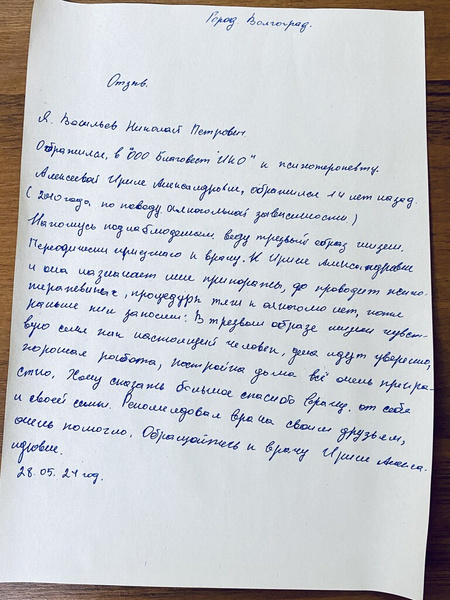 Город Волгоград.
Отзыв.
Я. Васильев Николай Петрович
Обратился, в "ООО благовест ИКО" к психотерапевту.
Алексеевой Ирине Александровне, обратился 14 лет назад.
(2010 года по поводу алкогольной зависимости)
Нахожусь под наблюдением, веду трезвый образ жизни.
Периодически приезжаю к врачу. К Ирине Александровне
и она назначает мне препораты, да проводит психо-
терапевтические, процедуры тяги к алкоголю нет, хотя
раньше пил запоями. В трезвом образе жизни чувст-
вую себя как настоящий человек, дела идут уверенно,
хорошая работа, постройка дома всё очень прекра-
стно. Хочу сказать большое спасибо врачу, от себя
и своей семьи. Рекомендовал врача своим друзьям,
очень помогло. Обращайтесь к врачу Ирине Алекса.
ндровне.
28.05.24 год.